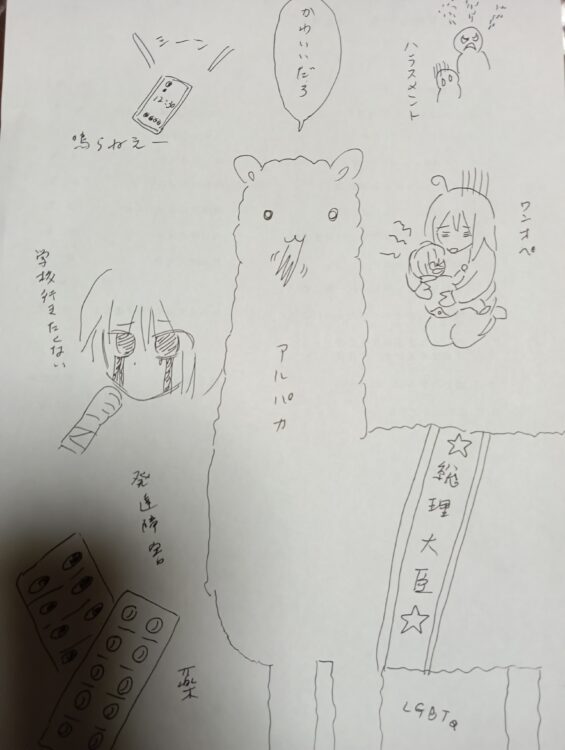 シーン
12:30
鳴らねえー
かわいいだろ
ハラスメント
ワンオペ
学校行きたくない
アルパカ
☆総理大臣☆
発達障害
薬
LGBTQ